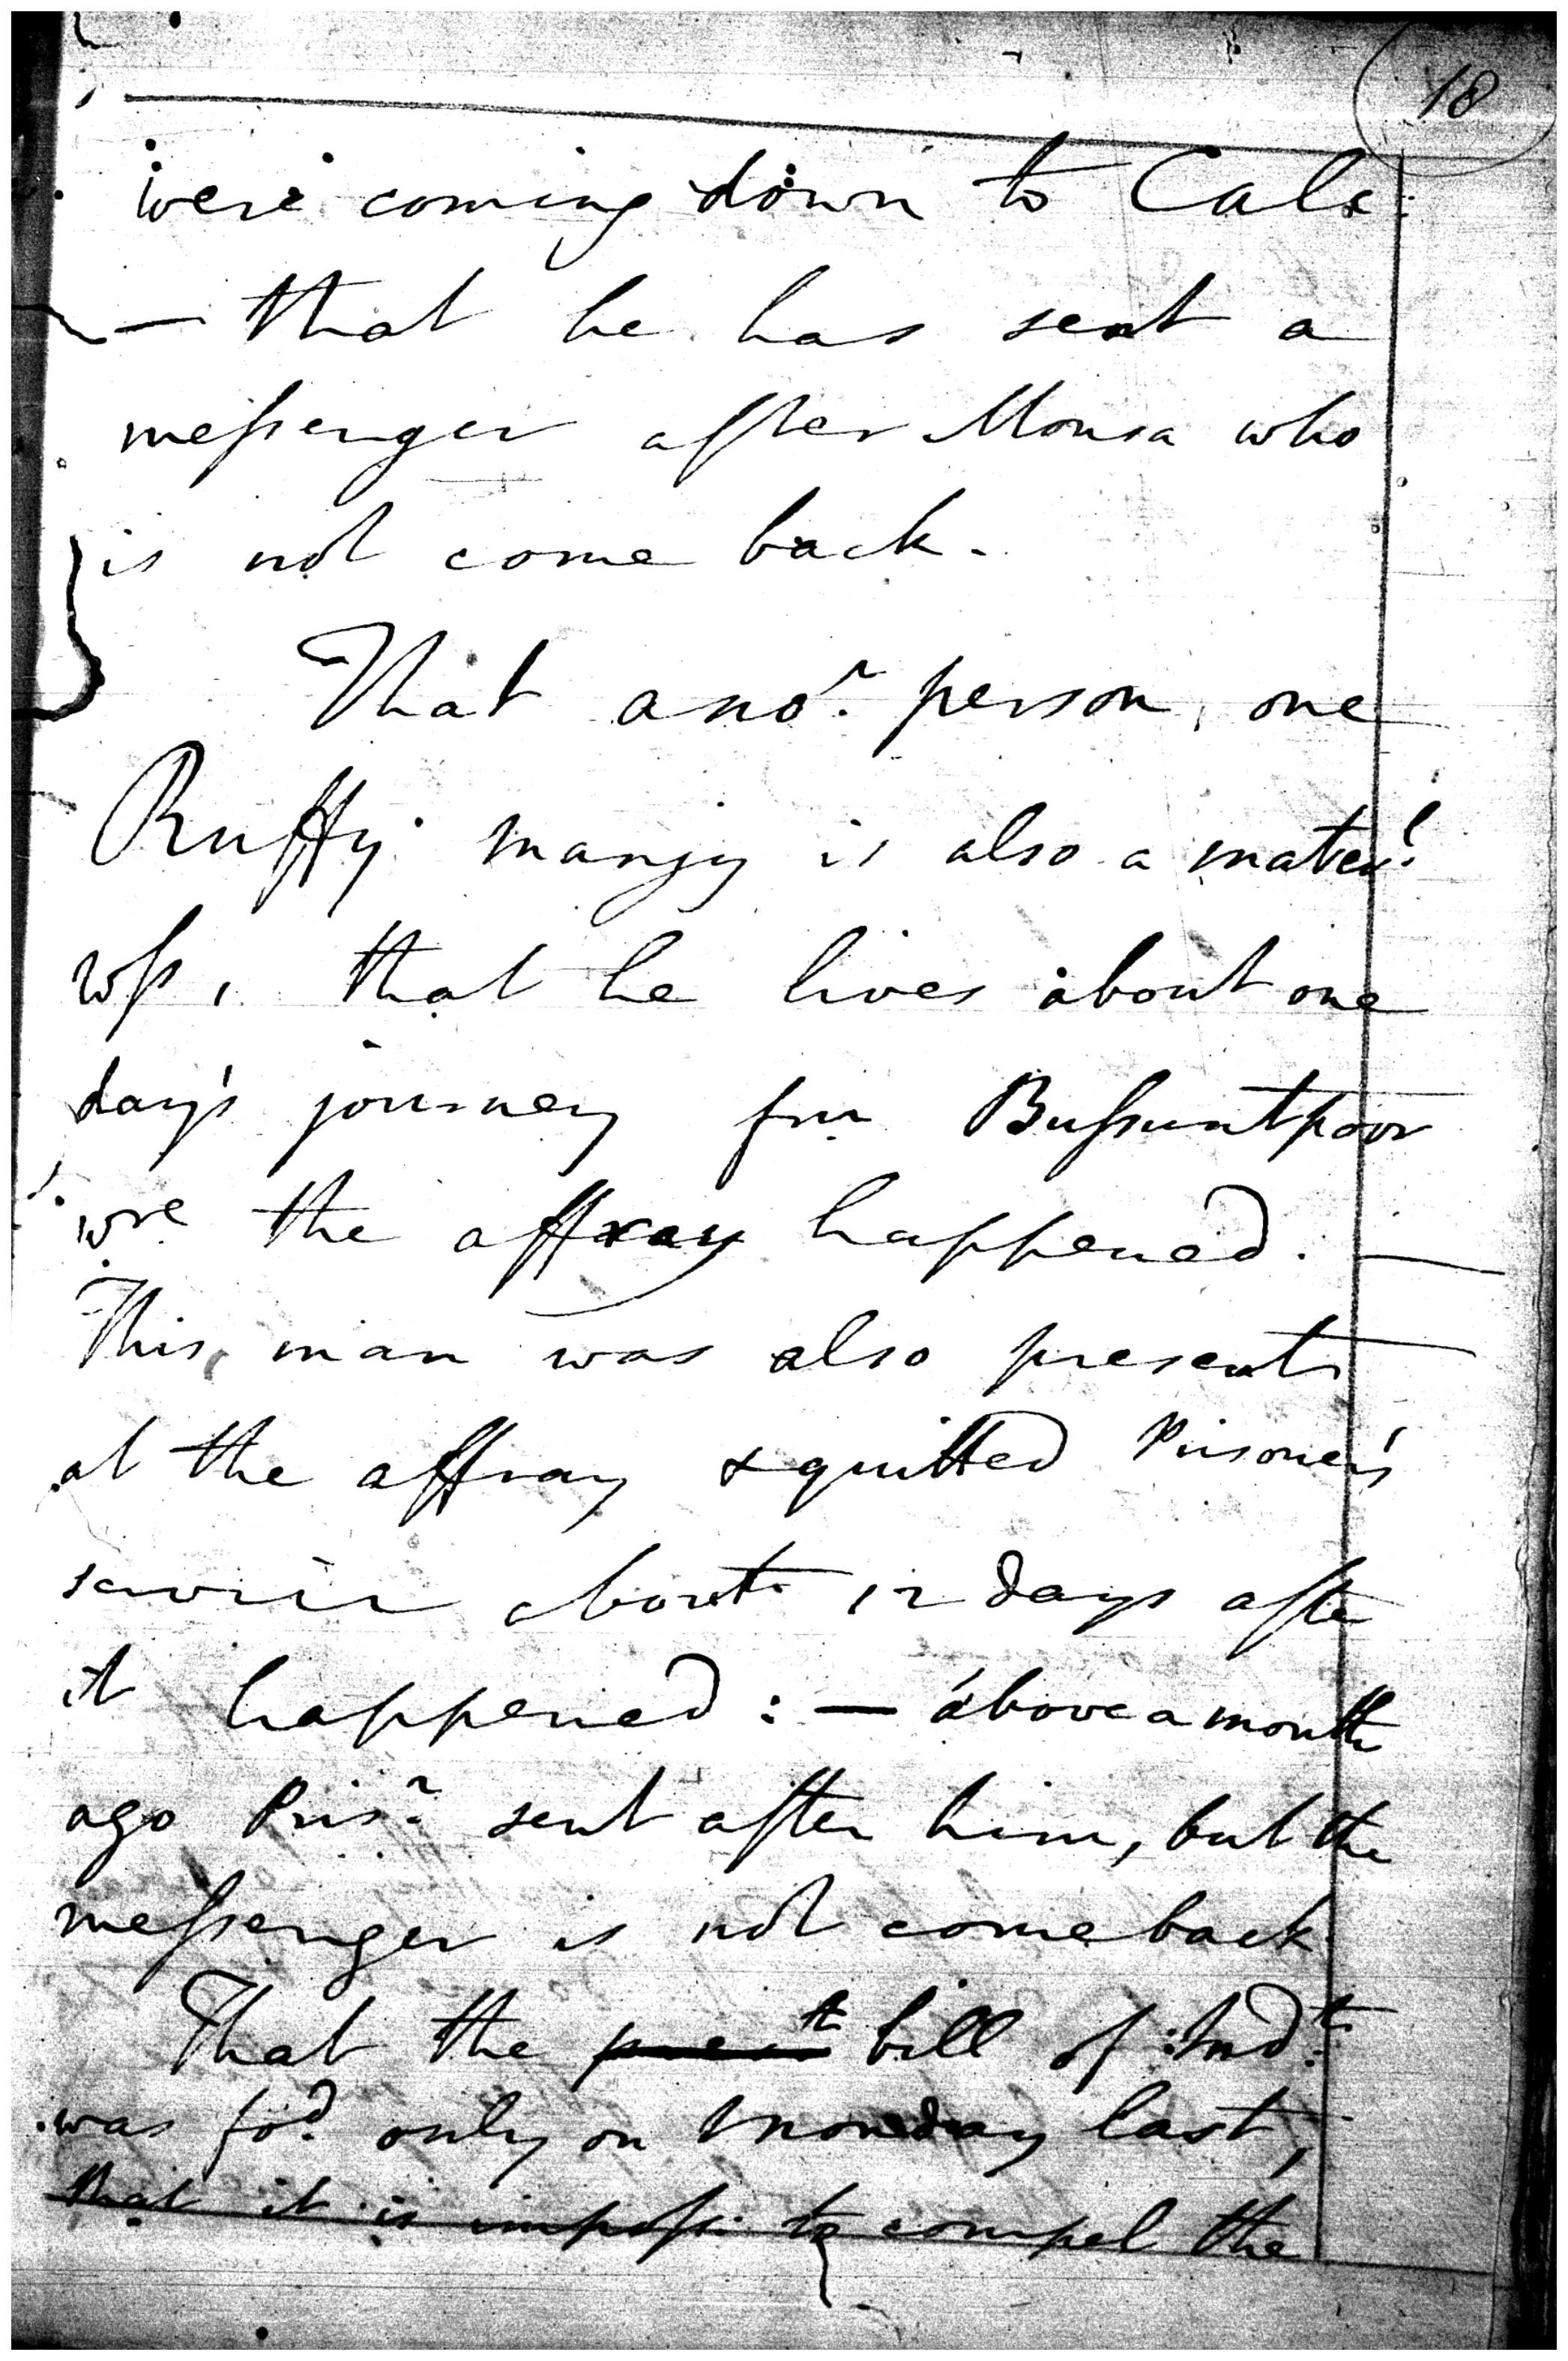 18
were coming down to Calc:
— that he has sent a
messenger after Mousa who
is not come back.
That anor. person, one
Ruffy manjy is also a materl.
wss, that he lives about one
day's journey frm Bussuntpoor
wre the affray happened. —
This man was also present
at the affray & quitted Prisoner's
service about 12 days after
it happened : — above a month
ago Prisr. sent after him, but the
messenger is not come back
That the prest bill of Indt.
was fod. only on Monday last,
that it is imposs: to compel the